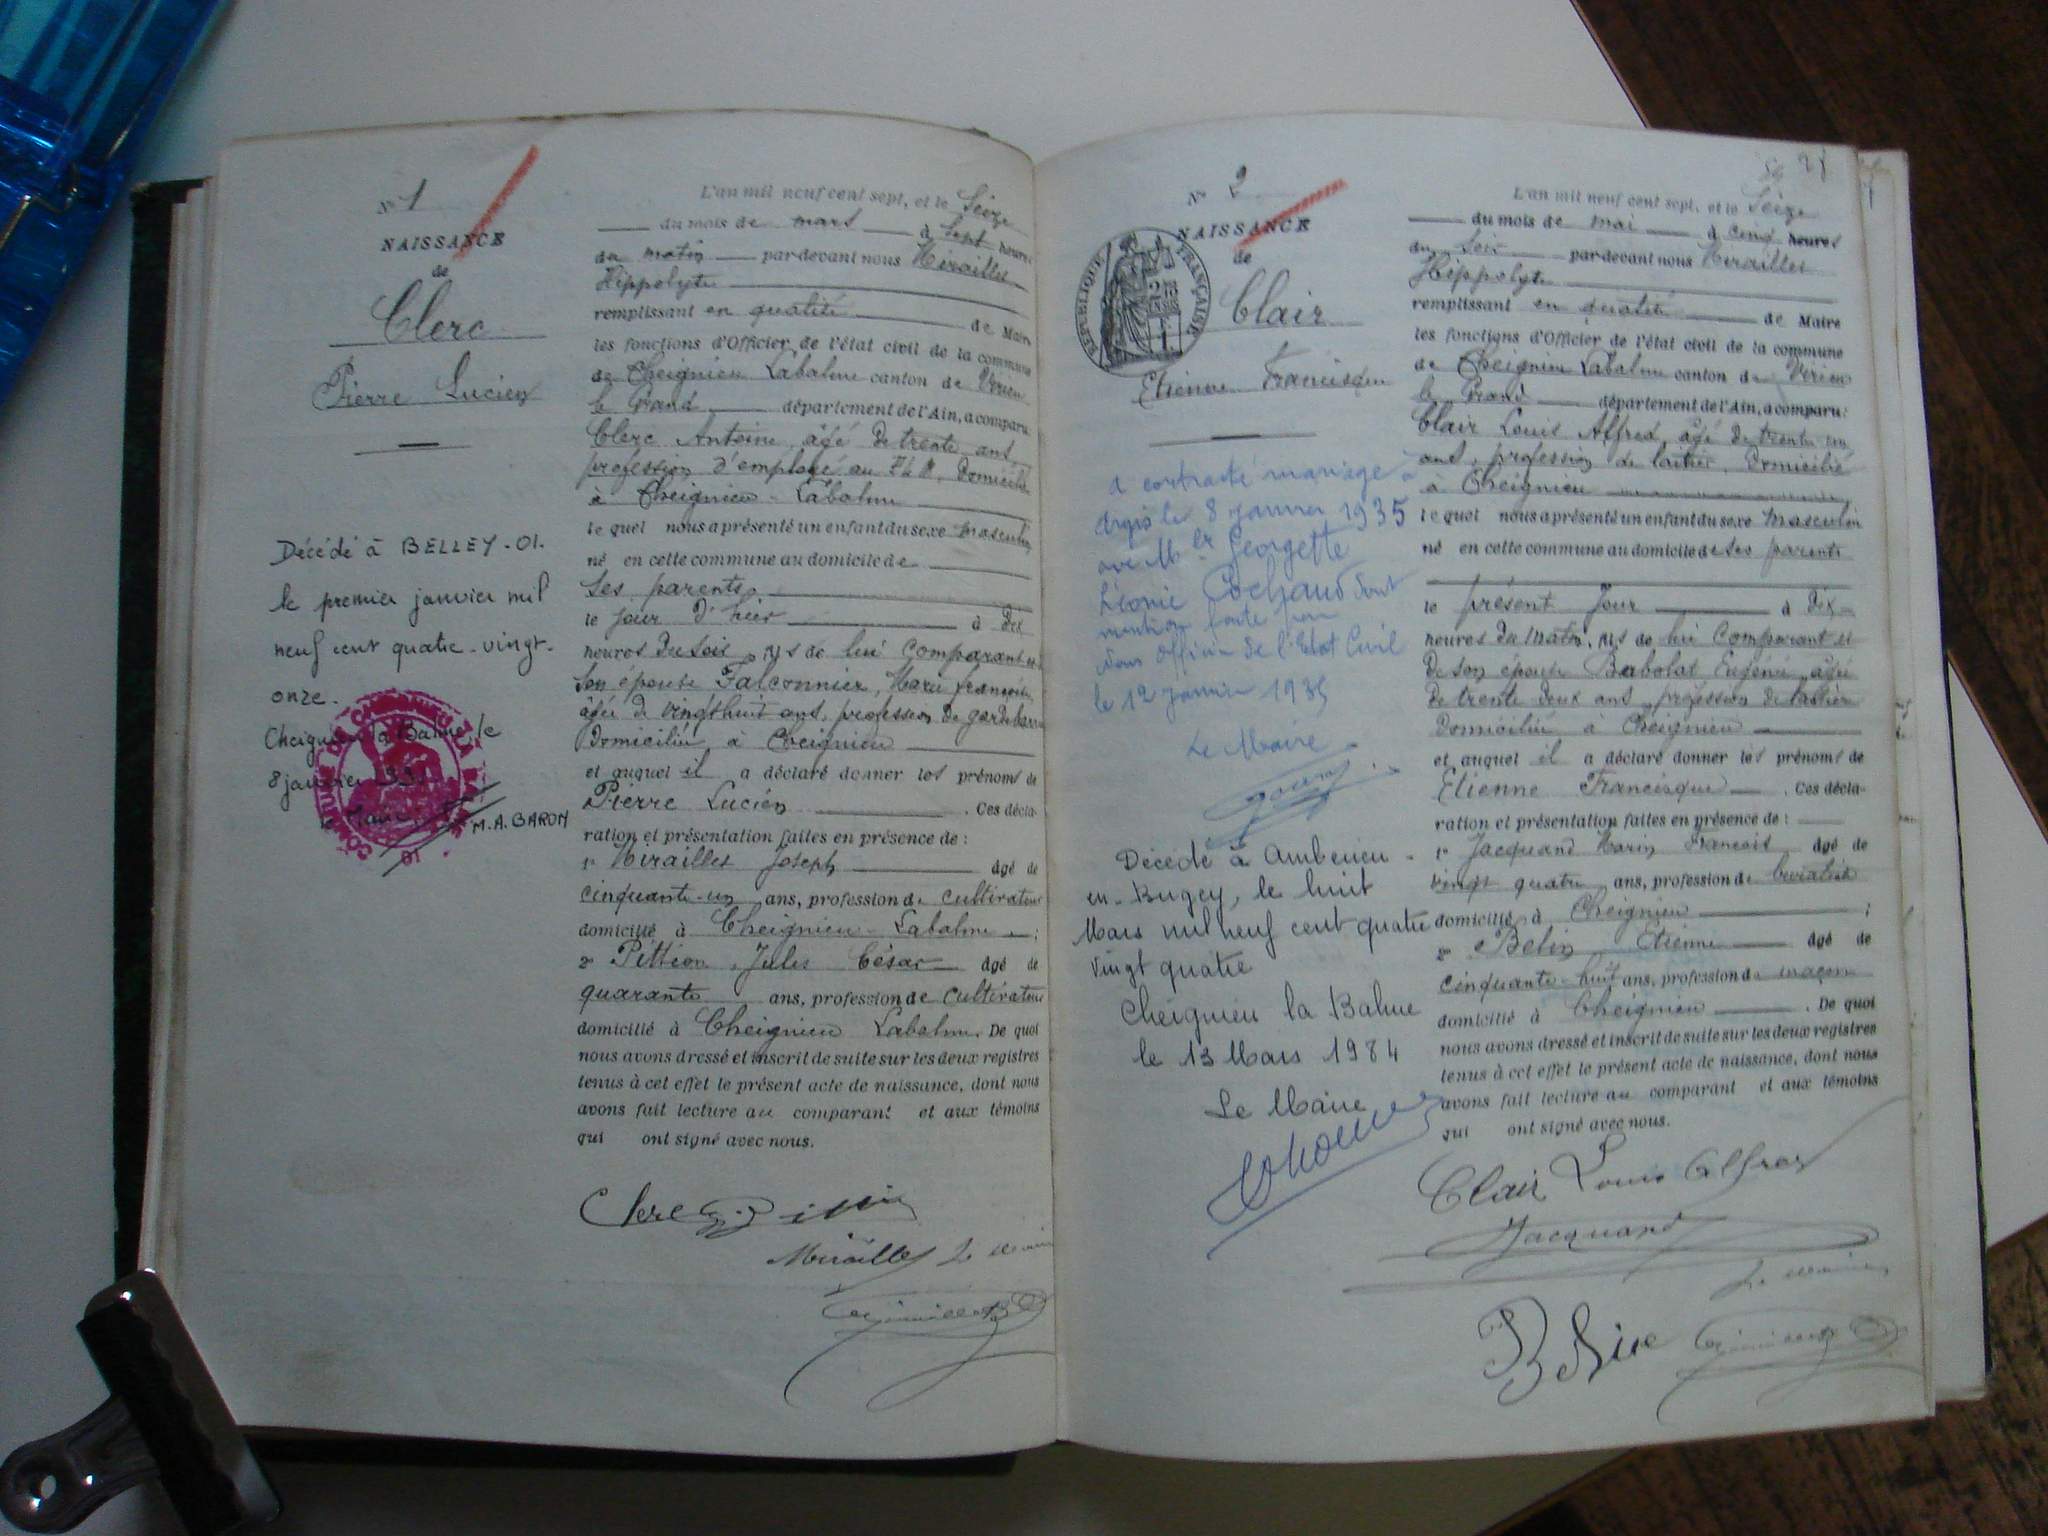 N° 1
NAISSANCE
de
Clerc
Pierre Lucien
Décédé à BELLEY-01.
le premier janvier mil
neuf cent quatre-vingt-
onze.
Cheignieu la Balme, le
8 janvier
le Maire,
M.A. BARON
01
L'an mil neuf cent sept, et le Seize
du mois de mars à sept heures
du matin par devant nous Miraillet
Hippolyte
remplissant en qualité de Maire
les fonctions d'Officier de l'état civil de la commune
de Cheignieu Labalme canton de Virieu
le Grand département de l'Ain, a comparu:
Clerc Antoine, âgé de trente ans
profession d'employé au P.L.M. Domicilié
à Cheignieu-Labalme
lequel nous a présenté un enfant du sexe masculin
né en cette commune au domicile de
ses parents
le jour d'hier à dix
heures du soir, fils de lui comparant et
son épouse Falconnier, Marie françoise
âgée de vingthuit ans, profession de gardebarri
Domiciliée à Cheignieu
et auquel il a déclaré donner les prénoms de
Pierre Lucien . Ces décla-
ration et présentation faites en présence de :
1° Miraillet Joseph âgé de
cinquante-un ans, profession de cultivateur
domicilié à Cheignieu-Labalme ;
2° Pittion, Jules César âgé de
quarante ans, profession de cultivateur
domicilié à Cheignieu Labalme. De quoi
nous avons dressé et inscrit de suite sur les deux registres
tenus à cet effet le présent acte de naissance, dont nous
avons fait lecture au comparant et aux témoins
qui ont signé avec nous.
Clerc
Miraillet Le Maire
N° 2
NAISSANCE
de
REPUBLIQUE FRANÇAISE
Clair
Etienne Francisque
a contracté mariage à
le 8 janvier 1935
avec Mlle Georgette
Léonie Pochaud dont
mention faite par
nous Officier de l'Etat Civil
le 12 janvier 1935
Le Maire
Décédé à Ambérieu-
en-Bugey, le huit
Mars mil neuf cent quatre
vingt quatre
Cheignieu la Balme
le 13 Mars 1984
Le Maire
28
L'an mil neuf cent sept, et le Seize
du mois de mai à cinq heures
du soir par devant nous Miraillet
Hippolyte
remplissant en qualité de Maire
les fonctions d'Officier de l'état civil de la commune
de Cheignieu Labalme canton de Virieu
le Grand département de l'Ain, a comparu:
Clair Louis Alfred, âgé de trente un
ans, profession de laitier, Domicilié
à Cheignieu
lequel nous a présenté un enfant du sexe masculin
né en cette commune au domicile de ses parents
le présent jour à dix
heures du matin, fils de lui comparant et
de son épouse Babolat Eugénie, âgée
de trente deux ans, profession de laitière
Domiciliée à Cheignieu
et auquel il a déclaré donner les prénoms de
Etienne Francisque . Ces décla-
ration et présentation faites en présence de :
1° Jacquand Marin François âgé de
vingt quatre ans, profession de
domicilié à Cheignieu ;
2° Belin Etienne âgé de
cinquante-huit ans, profession de maçon
domicilié à Cheignieu . De quoi
nous avons dressé et inscrit de suite sur les deux registres
tenus à cet effet le présent acte de naissance, dont nous
avons fait lecture au comparant et aux témoins
qui ont signé avec nous.
Clair Louis Alfred
Jacquand
Le Maire